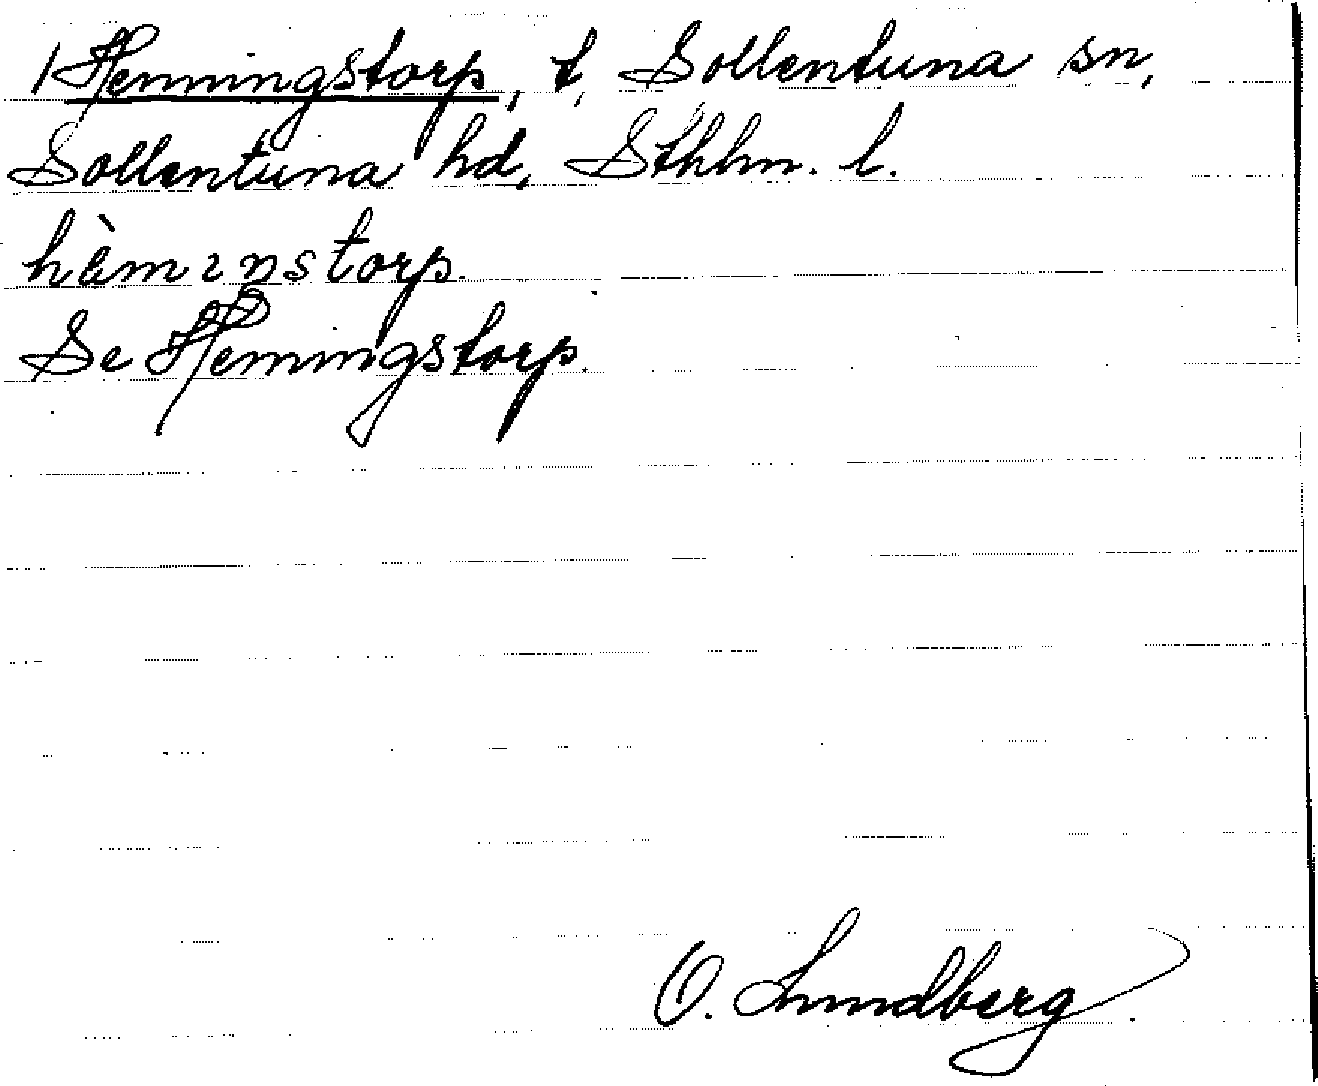 1 Hemmingstorp, t, Sollentuna sn,
Sollentuna hd, Sthlm. l.
hèmɪnstorp.
Se Hemmingstorp.
O. Lundberg